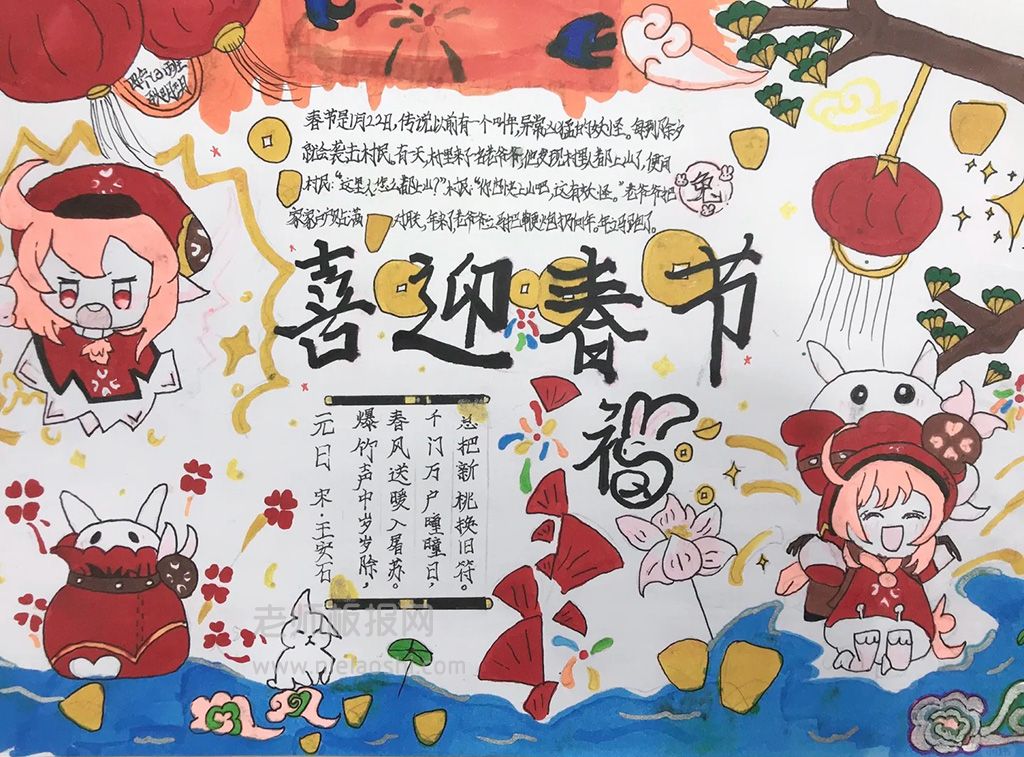 春节是1月22日，传说以前有一个叫年，异常凶猛的妖怪。每到除夕
就会袭击村民。有一天，村里来了老爷爷，他发现村里人都上山了，便问
村民：“这里人怎么都上山？”村民：“你也快上山吧，这有妖怪。”老爷爷把
家家户户贴满对联，年来了老爷爷
兔
喜迎春节
福
元日 宋·王安石
爆竹声中岁岁除，
春风送暖入屠苏。
千门万户瞳瞳日，
总把新桃换旧符。
老师板报网